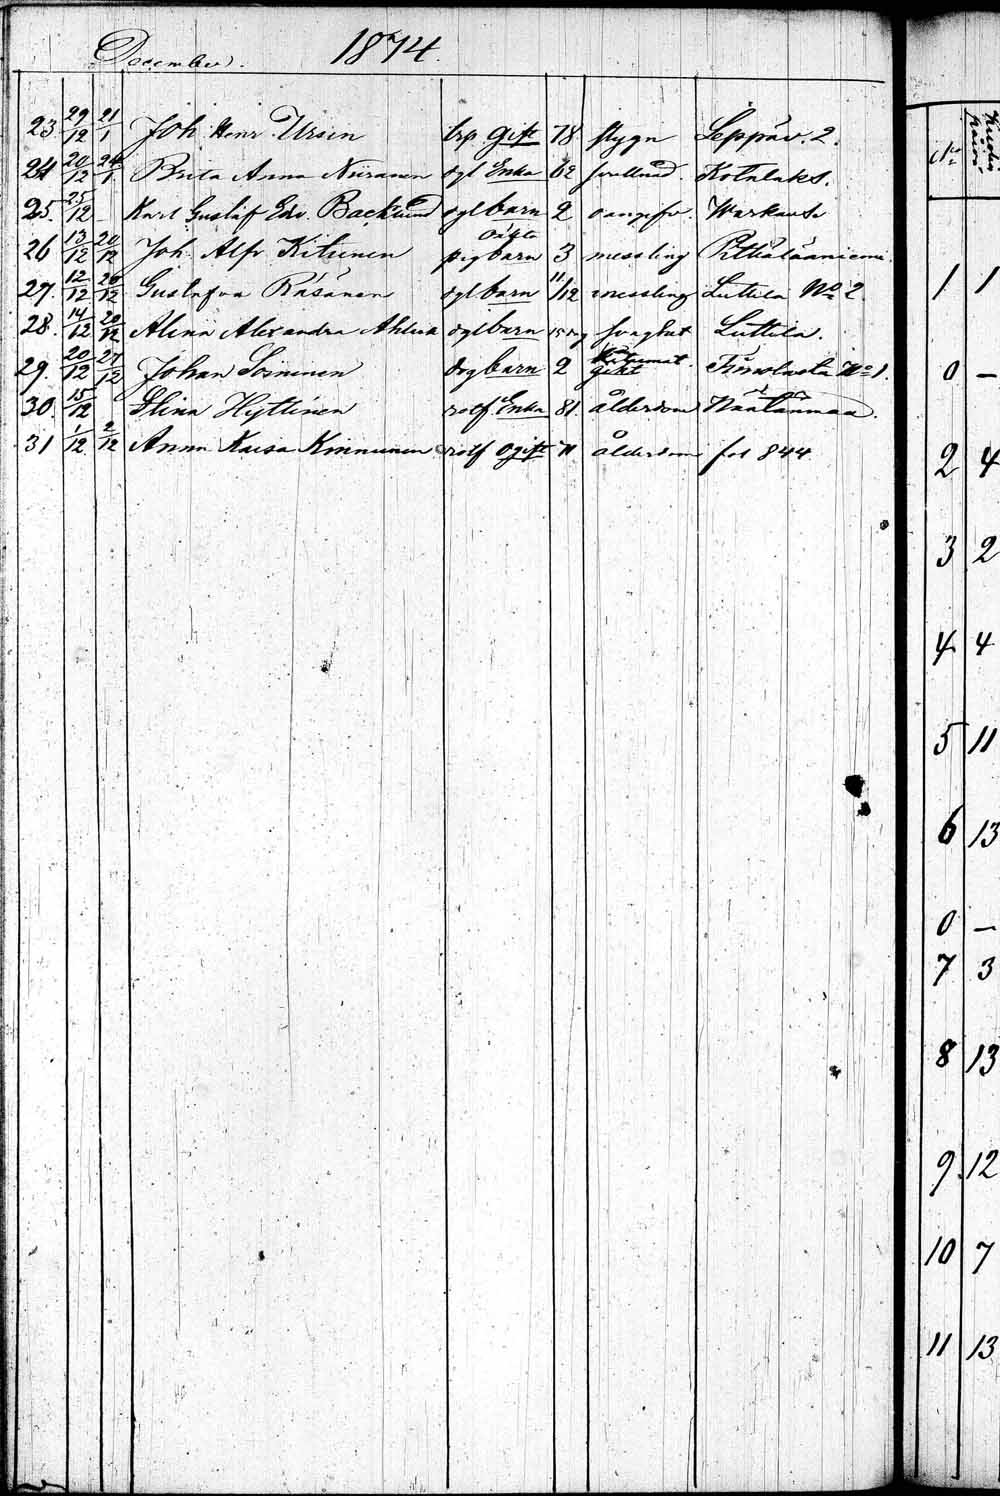 December. 1874.
23 29/12 21/1 Joh. Henr. Ursin trp. gift 78. stygn Leppäv. 2.
24 20/12 24/1 Brita Anna Niiranen dgl Enka 62 Kotalaks.
25. 25/12 – Karl Gustaf Edv. Backlund dgl barn 2 Warkaus
oäkta
26 13/12 20/12 Joh. Alfr. Kitunen pig barn 3 messling
27. 12/12 20/12 Gustafva Räsänen dgl barn 11/12 messling Luttila No 2.
28. 14/12 20/12 Alina Alexandra dgl barn Luttila.
29. 20/12 27/12 Johan Soininen barn 2 gikt No 1.
30. 15/12 Stina Hyttinen rotf. Enka 81. ålderdom Näätänmaa.
31 1/12 2/12 Anna Kaisa Kinnunen rotf ogift 71 ålderdom fol 844
No
1 1
0 –
2 4
3 2
4 4
5 11
6 13
0 –
7 3
8 13
9. 12
10 7
11 13